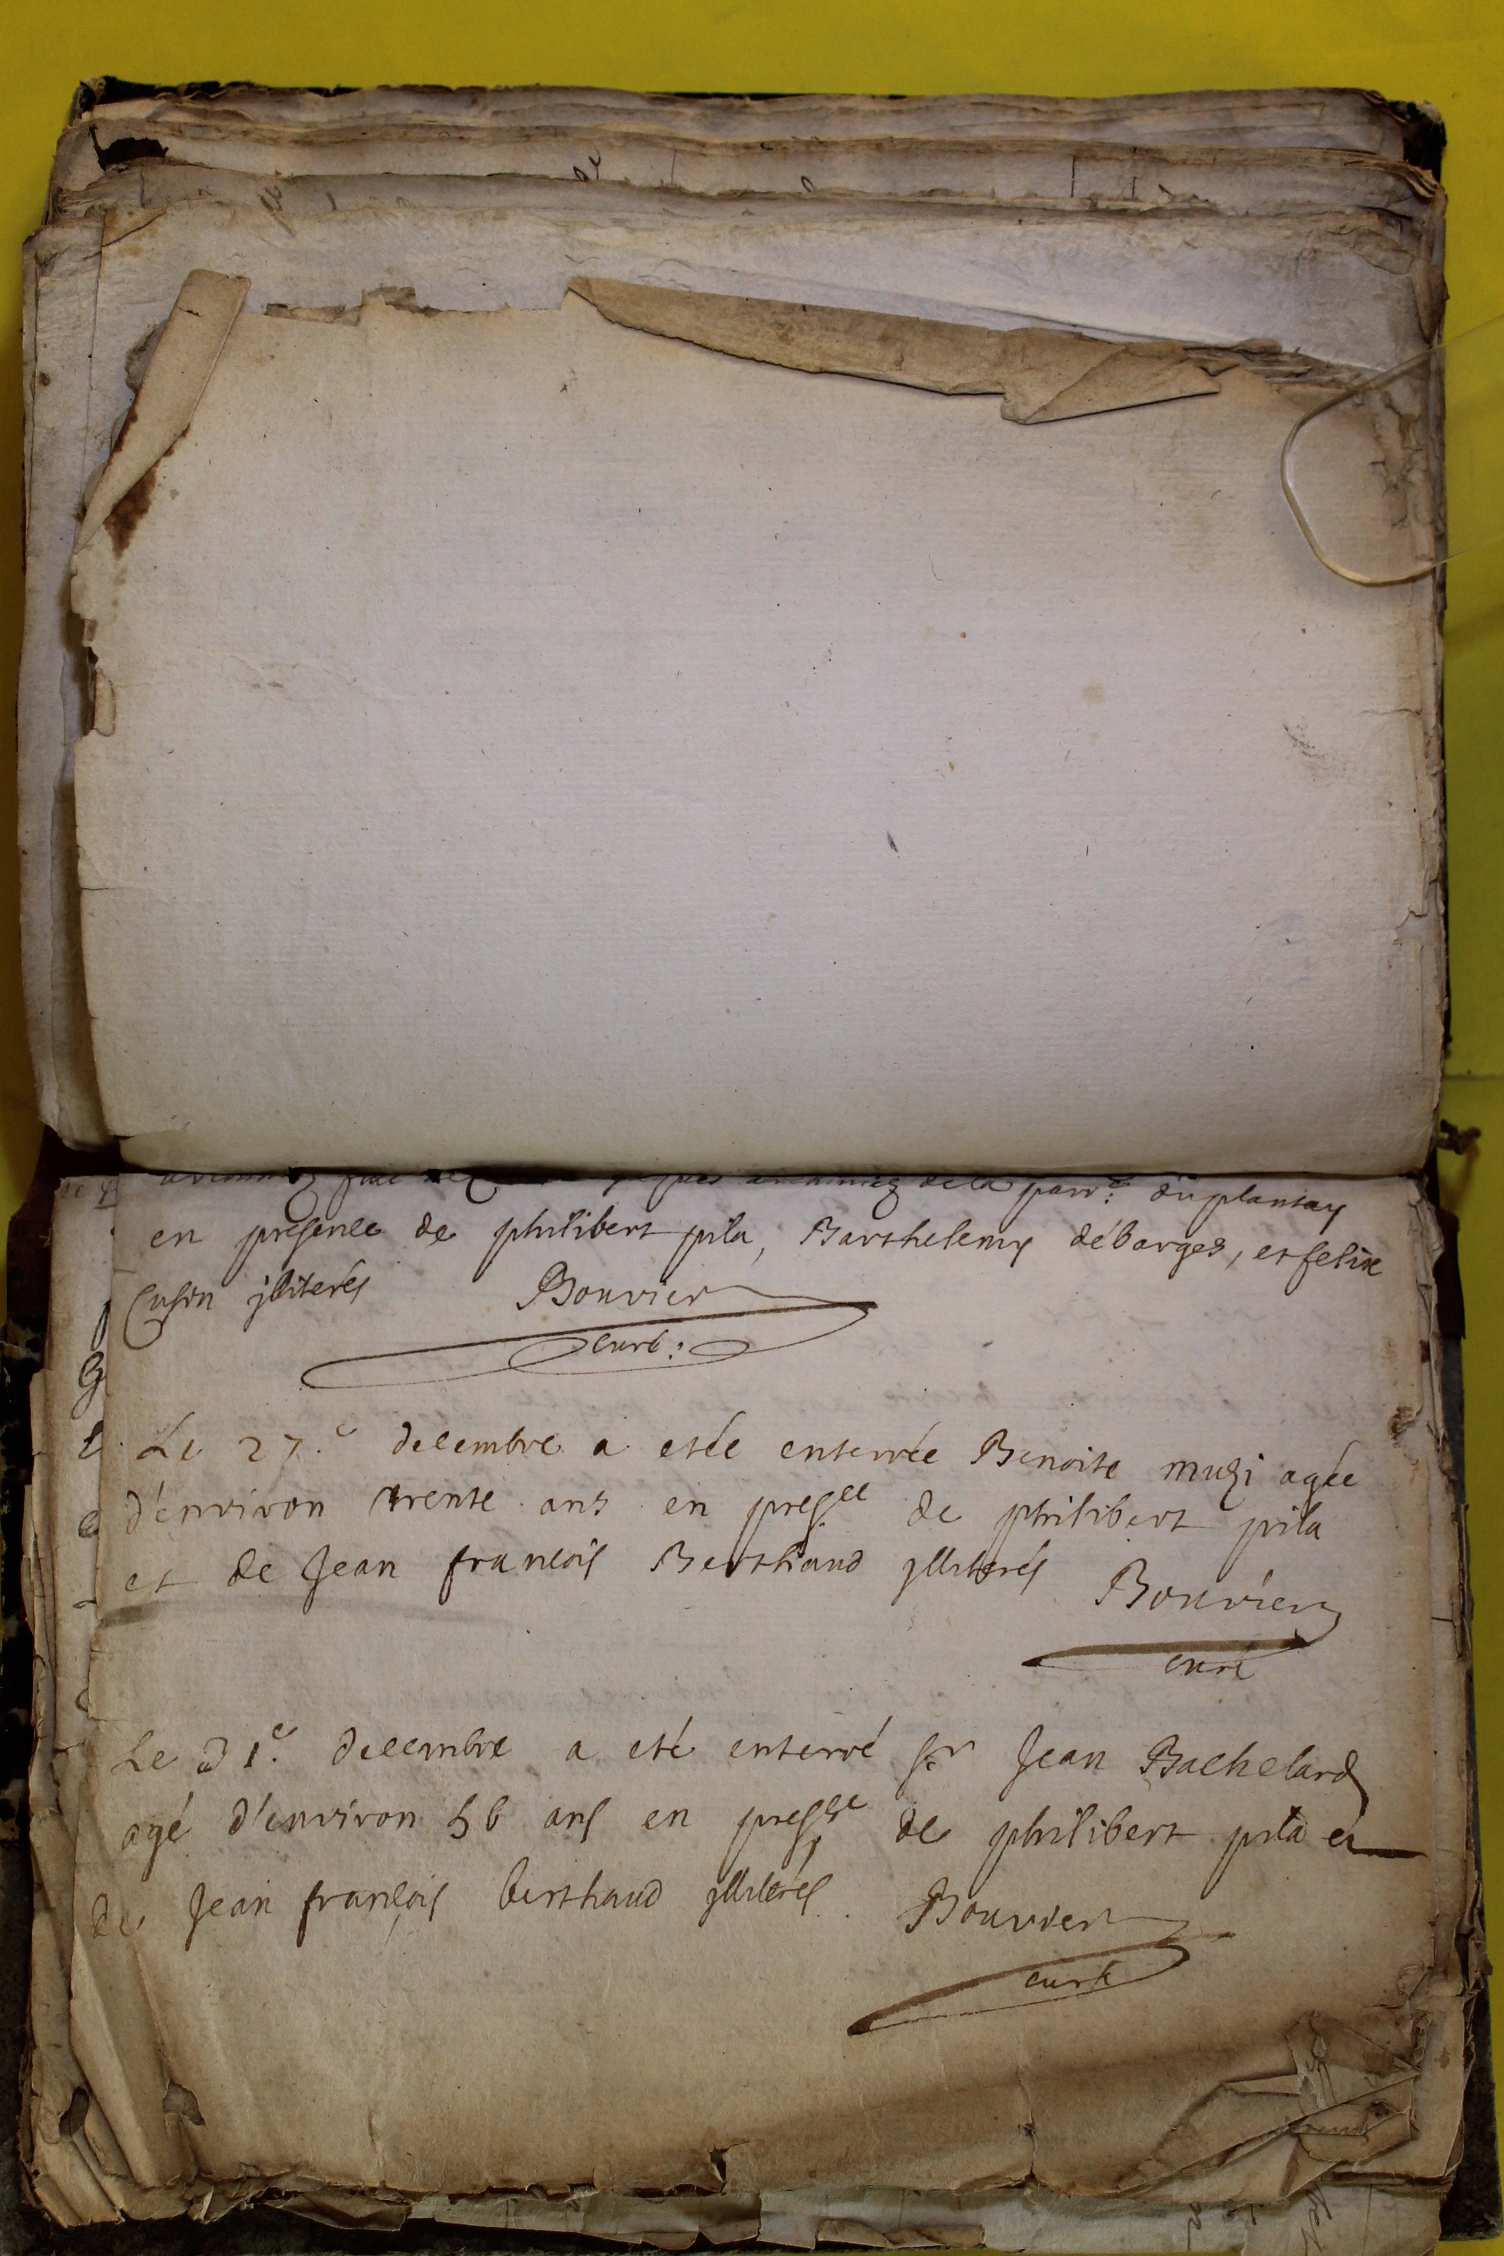 de la parr.e du plantay
en presence de philibert pila, Barthelemy débarges, et felix
Cusin jlliterés Bouvier
curé:
Le 27.e decembre a etée enterrée Benoite muzi agée
d'environ trente ans en pres.ce de philibert pila
et de Jean francois Berthaud jlliterés Bouvier
curé
Le 31.e decembre a eté enterré sr Jean Bachelard
agé d'environ 56 ans en pres.ce de philibert pila et
de Jean françois berthaud jlliterés Bouvier
curé